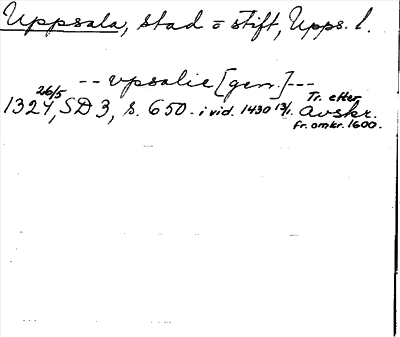 Uppsala, stad o stift, Upps. l.
-- vpsalie [gen.]---
1324 26/5, SD 3, s. 650 - i vid. 1430 13/1. Tr. efter Avskr. fr. omkr. 1600.